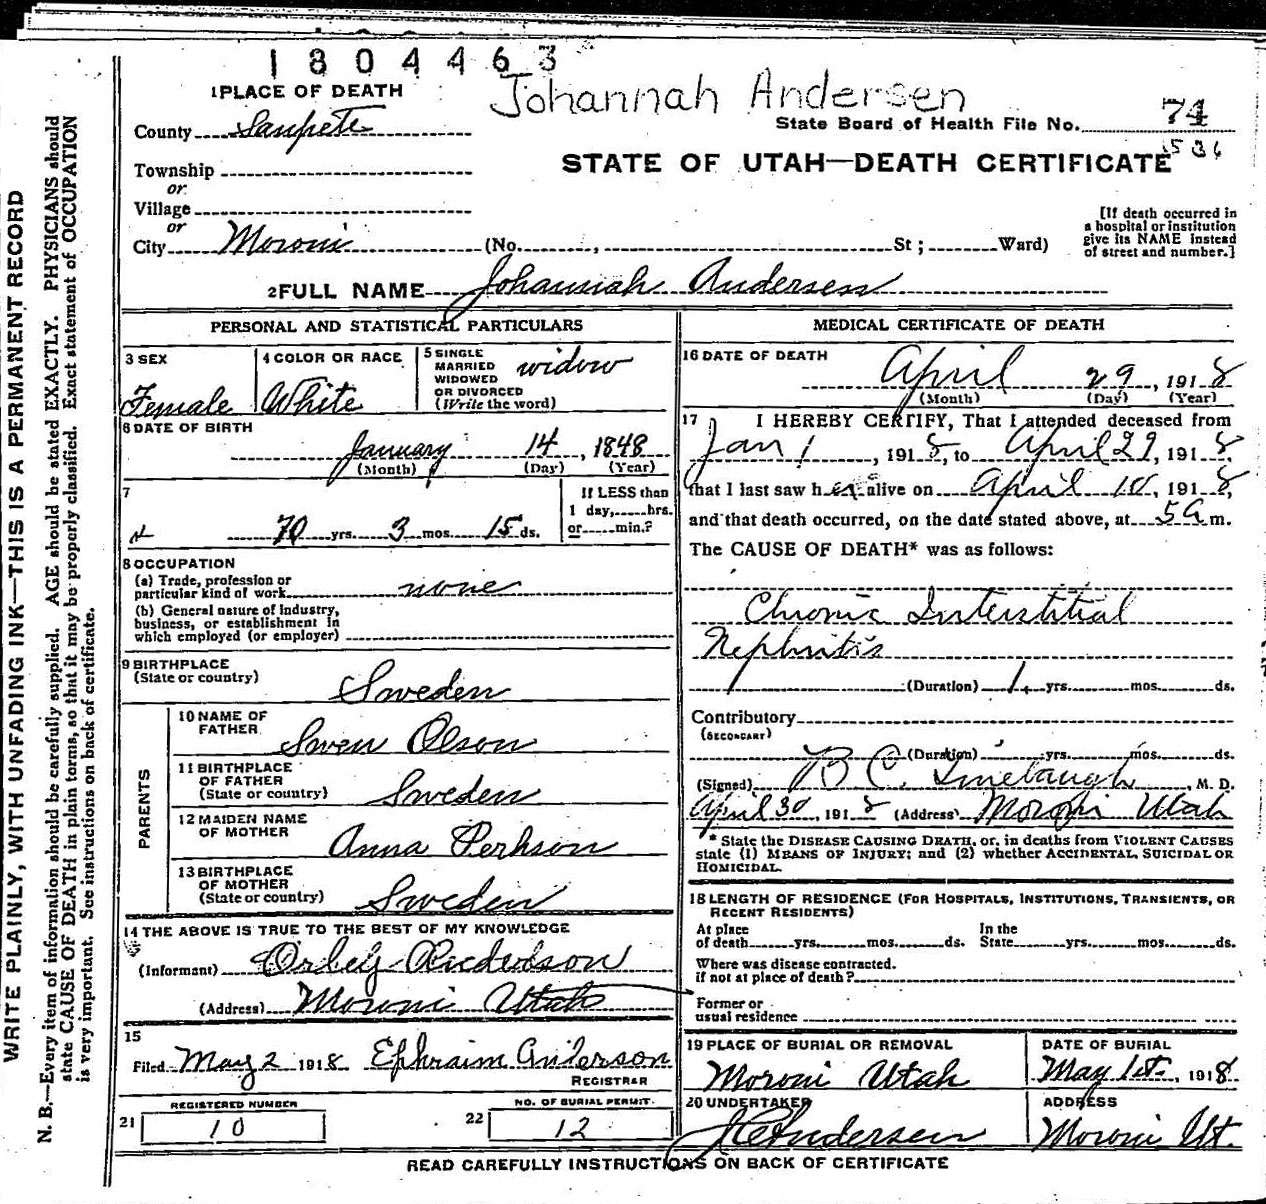 1804463
Johannah Andersen
1 PLACE OF DEATH
County Sanpete
State Board of Health File No. 74
1536
Township
or
Village
or
City Moroni (No. , St ; Ward)
STATE OF UTAH—DEATH CERTIFICATE
[If death occurred in
a hospital or institution
give its NAME instead
of street and number.]
2 FULL NAME Johannah Andersen
PERSONAL AND STATISTICAL PARTICULARS
3 SEX
Female
4 COLOR OR RACE
White
5 SINGLE
MARRIED
WIDOWED
OR DIVORCED
(Write the word)
widow
6 DATE OF BIRTH
January 14, 1848
(Month) (Day) (Year)
7
70 yrs. 3 mos. 15 ds.
If LESS than
1 day, hrs.
or min.?
8 OCCUPATION
(a) Trade, profession or
particular kind of work none
(b) General nature of Industry,
business, or establishment in
which employed (or employer)
9 BIRTHPLACE
(State or country)
Sweden
PARENTS
10 NAME OF
FATHER
Swen Olson
11 BIRTHPLACE
OF FATHER
(State or country) Sweden
12 MAIDEN NAME
OF MOTHER
Anna Perhson
13 BIRTHPLACE
OF MOTHER
(State or country) Sweden
14 THE ABOVE IS TRUE TO THE BEST OF MY KNOWLEDGE
(Informant)
(Address) Moroni Utah
15
Filed May 2 1918 Ephraim Anderson
REGISTRAR
REGISTERED NUMBER
21 10
NO. OF BURIAL PERMIT.
22 12
MEDICAL CERTIFICATE OF DEATH
16 DATE OF DEATH
April 29, 1918
(Month) (Day) (Year)
17 I HEREBY CERTIFY, That I attended deceased from
Jan 1, 1918, to April 29, 1918.
that I last saw her alive on April 10, 1918,
and that death occurred, on the date stated above, at 5 a m.
The CAUSE OF DEATH* was as follows:
Chronic Interstitial
Nephritis
(Duration) 1 yrs. mos. ds.
Contributory
(SECONDARY)
(Duration) yrs. mos. ds.
(Signed) B C. Linebaugh, M. D.
April 30, 1918 (Address) Moroni Utah
* State the DISEASE CAUSING DEATH, or, in deaths from VIOLENT CAUSES
state (1) MEANS OF INJURY; and (2) whether ACCIDENTAL, SUICIDAL OR
HOMICIDAL.
18 LENGTH OF RESIDENCE (FOR HOSPITALS, INSTITUTIONS, TRANSIENTS, OR
RECENT RESIDENTS)
At place
of death yrs. mos. ds.
In the
State yrs. mos. ds.
Where was disease contracted.
if not at place of death?
Former or
usual residence
19 PLACE OF BURIAL OR REMOVAL
Moroni Utah
DATE OF BURIAL
May 1st, 1918
20 UNDERTAKER
J C Andersen
ADDRESS
Moroni Ut.
READ CAREFULLY INSTRUCTIONS ON BACK OF CERTIFICATE
WRITE PLAINLY, WITH UNFADING INK—THIS IS A PERMANENT RECORD
N. B.—Every item of information should be carefully supplied. AGE should be stated EXACTLY. PHYSICIANS should
state CAUSE OF DEATH in plain terms, so that it may be properly classified. Exact statement of OCCUPATION
is very important. See instructions on back of certificate.